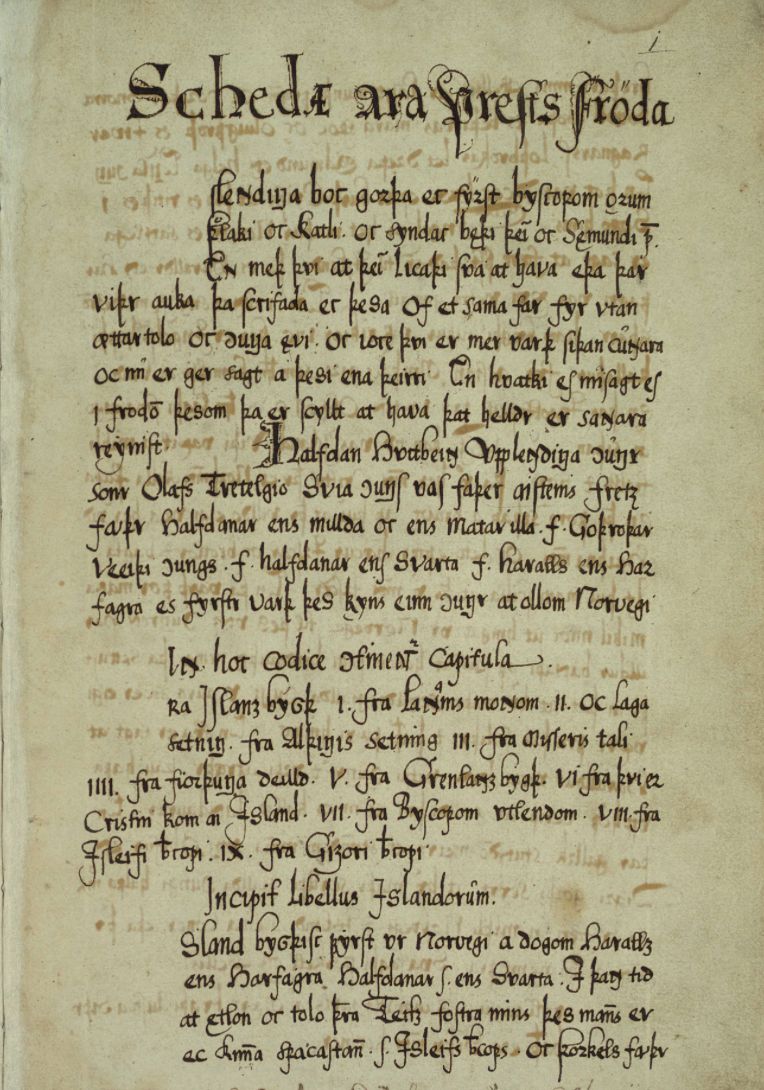 1
Schedæ ara Presſts fröda
ſlendinga boc gorþa ec fyrſt byscopom ǫrum
þorlaki oc Katli. oc syndac bęþi þeī oc Sęmundi p̄.
En meþ þvi at þeī licaþi ſva at hava eþa þar
viþr auka þa ſcrifaþa ec þesa of et sama far fyr vtan
ættartolo oc ɔunga ęvi. oc iocc þvi er mer varþ ſiþan cūnara
oc nū er ger sagt a þesi enn þeirri En hvatki es miſsagt eſ
i frodō þesom þa er scyllt at hava þat helldr er saɴara
reynist Halfdan Hvitbeiɴ Vpplendinga ɔungr
sonr Olafs Tretelgio Svia ɔungs vas faþer aisteins fretz
faþr Halfdanar ens millda oc ens matar illa. f. Goþroþar
Veiþi ɔungs. f. halfdanar enſ svarta f. haralls ens Har
fagra es fyrſtr varþ þes kyns einn ɔungr at ollom Norvegi
Iɴ hoc codice ɔtinenͭ Capitula.
ra Iſlanz bygþ I. fra laɴams moɴom. II. oc laga
setning. fra Alþingis setning III. fra miſſeris tali
IIII. fra fiorþunga deilld. V. fra Grenlanz bygþ. VI fra þvi er
Criſtni kom a Iſland. VII. fra Byscopom vtlendom. VIII. fra
Iſleifi ƀcopi. IX. fra Gizori ƀcopi
Incipit Libellus Iſlandorūm.
Sland bygþiſc fyrſt vr Norvegi a dogom Haralls
ens Harfagra Halfdanar ſ. ens svarta. I þaɴ tid
at ętlon oc tolo þra Teitz foſtra mins þes manſ er
ec kūna spacaſtan̄. ſ. Iſleifs ƀcops. oc þorkels faþr